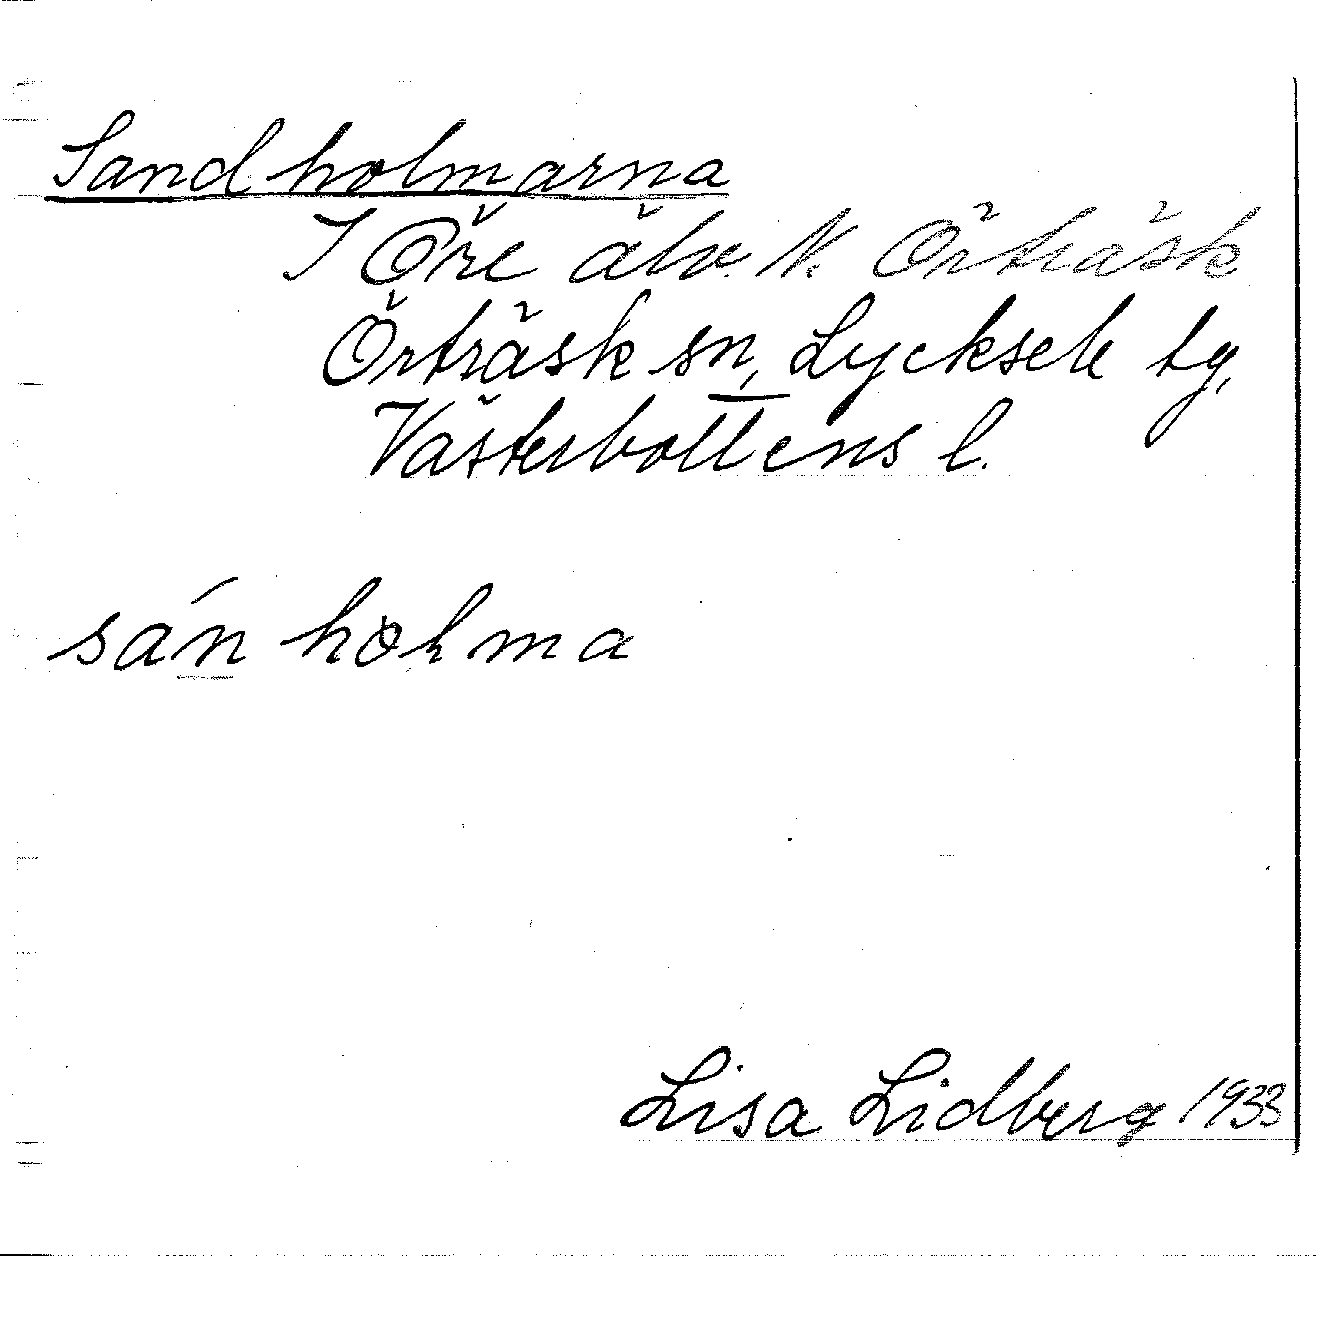 Sandholmarna
I Öre älv. N. Örträsk
Örträsk sn, Lycksele tg,
Västerbottens l.
sán hoḷma
Lisa Lidberg 1933